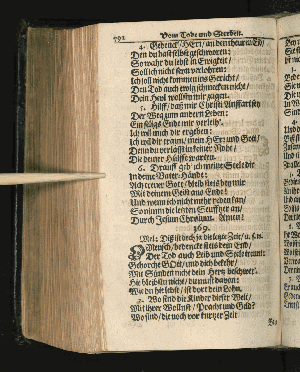 792 Vom Tode und Sterben.
4. Gedenck / HErr / an den theuren Eyd /
Den du hast selbst geschworen:
So wahr du lebst in Ewigkeit /
Soll ich nicht seyn verlohren:
Ich soll nicht kommen ins Gericht /
Den Tod auch ewig schmecken nicht /
Dein Heyl wollst mir zeigen.
5. Hilff / daß mir Christi Auffart sey
Der Weg zum andern Leben:
Ein seligs Ende mir verleih /
Ich will mich dir ergeben:
Ich will dir trauen / mein HErr und Gott /
Denn du verläst in keiner Noth /
Die deiner Hülffe warten.
6. Drauff geb ich meine Seele dir
In deine Vater-Hände:
Ach treuer Gott / bleib stets bey mir
Mit deinem Geist ans Ende!
Und wenn ich nicht mehr reden kan /
So nimm die letzten Seuffzer an /
Durch JEsum Christum. Amen!
369.
Mel. Diß ist doch ja die letzte Zeit / u. s. w.
O Mensch / bedencke stets dein End /
Der Tod auch Leib und Seele trennt:
Gehorche GOtt / und dich bekehr /
Mit Sünden nicht dein Hertz beschwer.
Hie bleibst nicht / du must davon:
Wie du hie lebst / ist dort dein Lohn.
2. Wo sind die Kinder dieser Welt /
Mit ihrer Wollust / Pracht und Geld?
Wo sind / die noch vor kurtzer Zeit